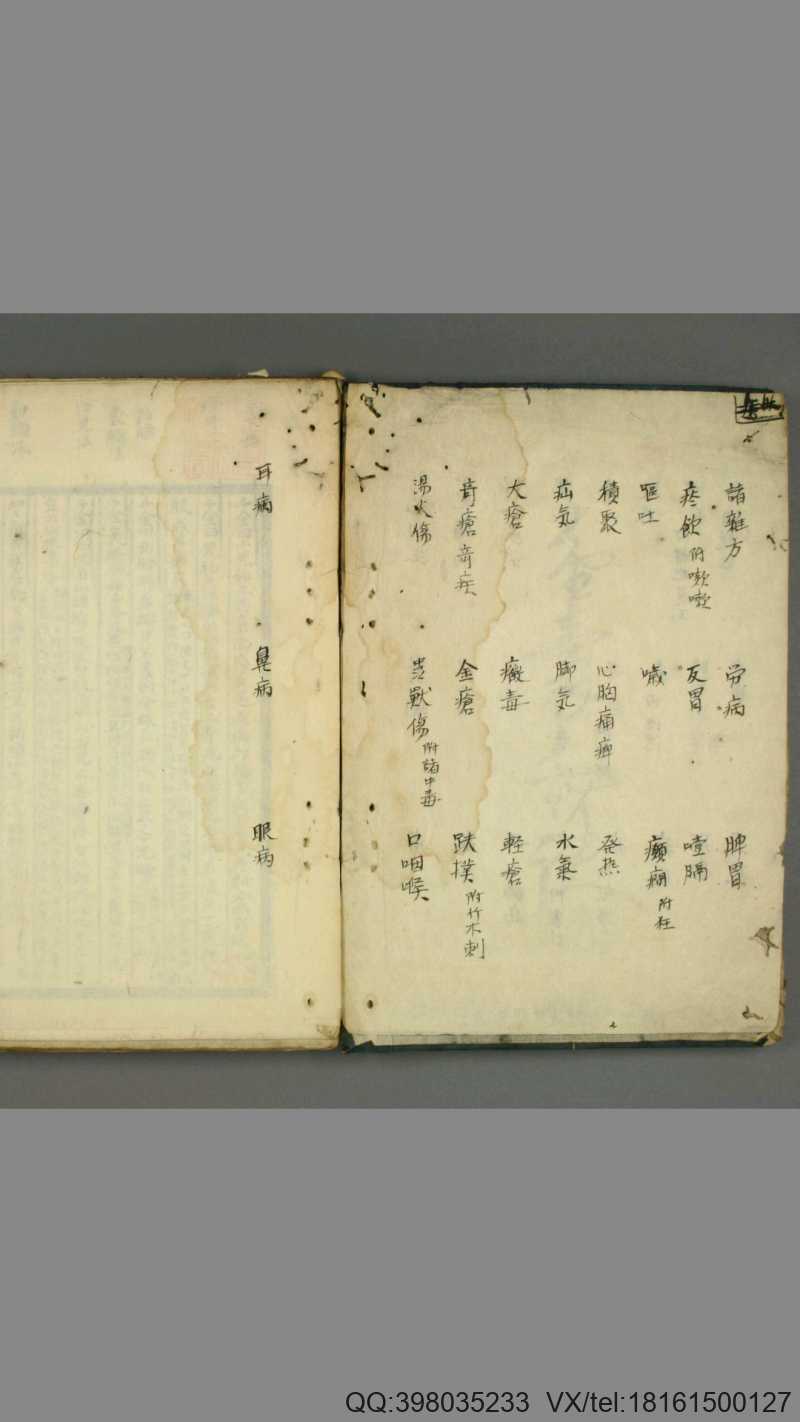 諸雜方 労病 脾胃
痰飲 附嗽嗽 反胃 噎膈
嘔吐 噦 癲癇 附狂
積聚 心胸痛痺 発热
疝気 脚気 水氣
大瘡 癥毒 軽瘡
奇瘡奇疾 金瘡 跌撲 附竹木刺
湯火傷 獣傷 附諸中毒 口咽喉
耳病 鼻病 眼病
QQ:398035233 VX/tel:18161500127